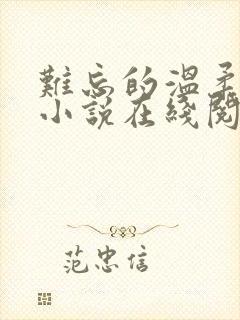 難忘的溫柔
小說在綫閱
范忠信